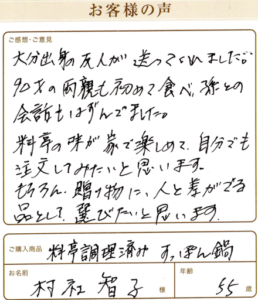 お客様の声
ご感想・ご意見
大分出身の友人が送ってくれました。
90才の両親も初めて食べ、孫との
会話もはずんでました。
料亭の味が家で楽しめて、自分でも
注文してみたいと思います。
もちろん、贈り物に、人と差がでる
品として、選びたいと思います。
ご購入商品
料亭調理済み すっぽん鍋
お名前
村社 智子 様
年齢
55 歳